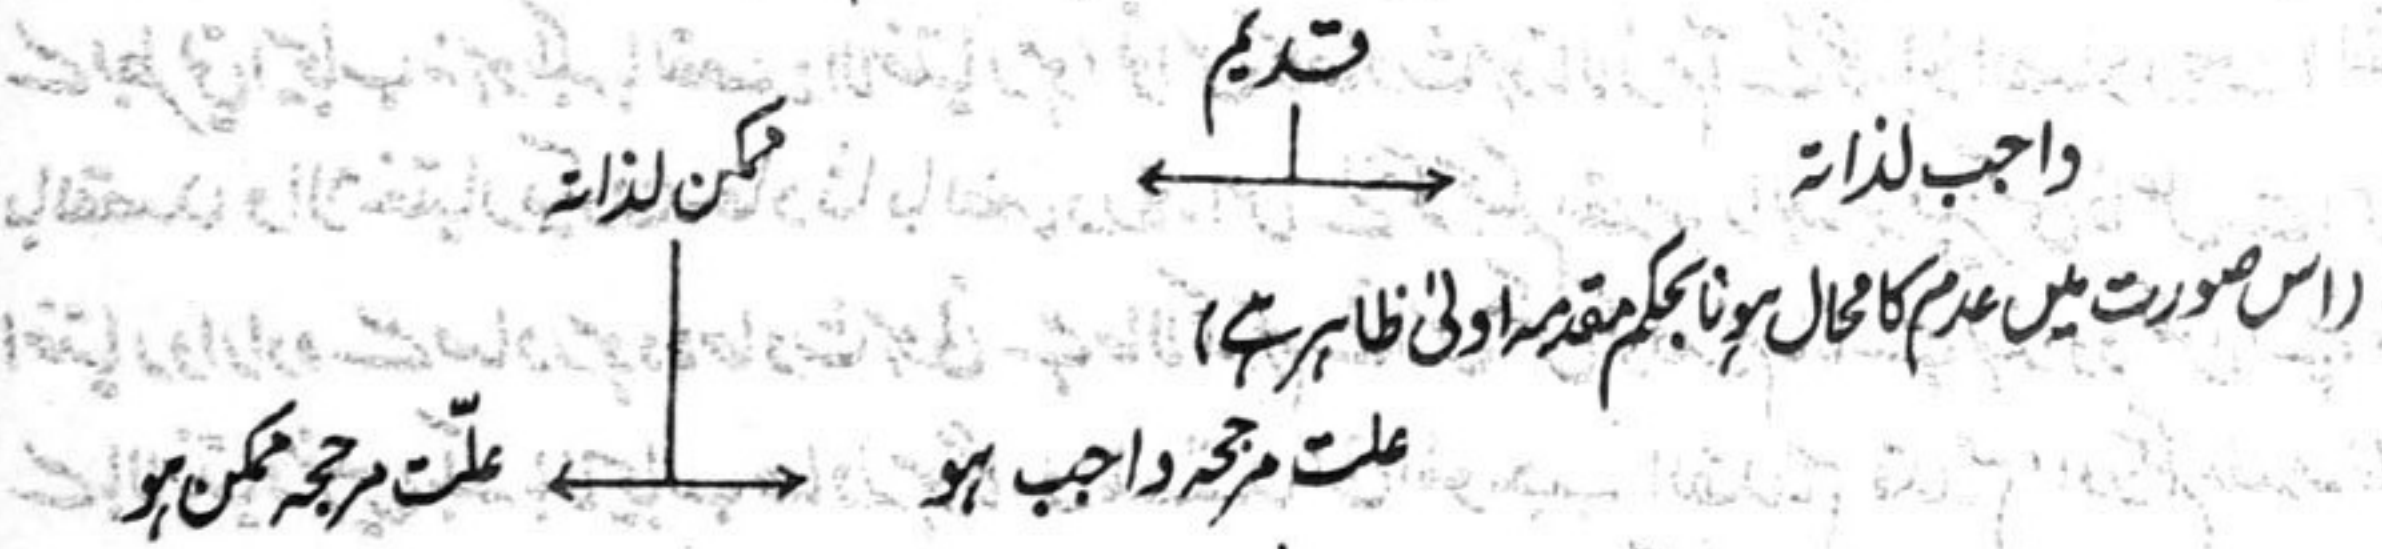 قدیم
واجب لذاتہ
ممکن لذاتہ
(اس صورت میں عدم کا محال ہونا بحکم مقدمہ اولیٰ ظاہر ہے)
علت مرجحہ واجب ہو
علّت مرجحہ ممکن ہو